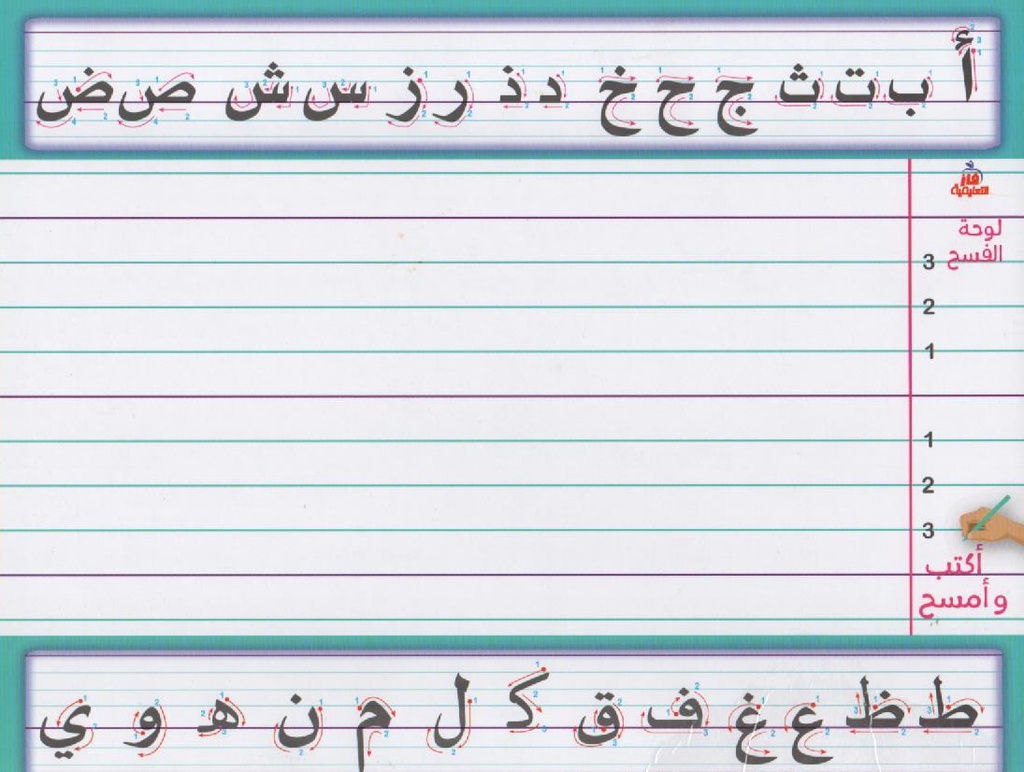 أ ب ت ث ج ح خ د ذ ر ز س ش ص ض
فاز
التعليمية
لوحة
الفسح
3
2
1
1
2
3
أكتب
وأمسح
ط ظ ع غ ف ق ك ل م ن هـ و ي